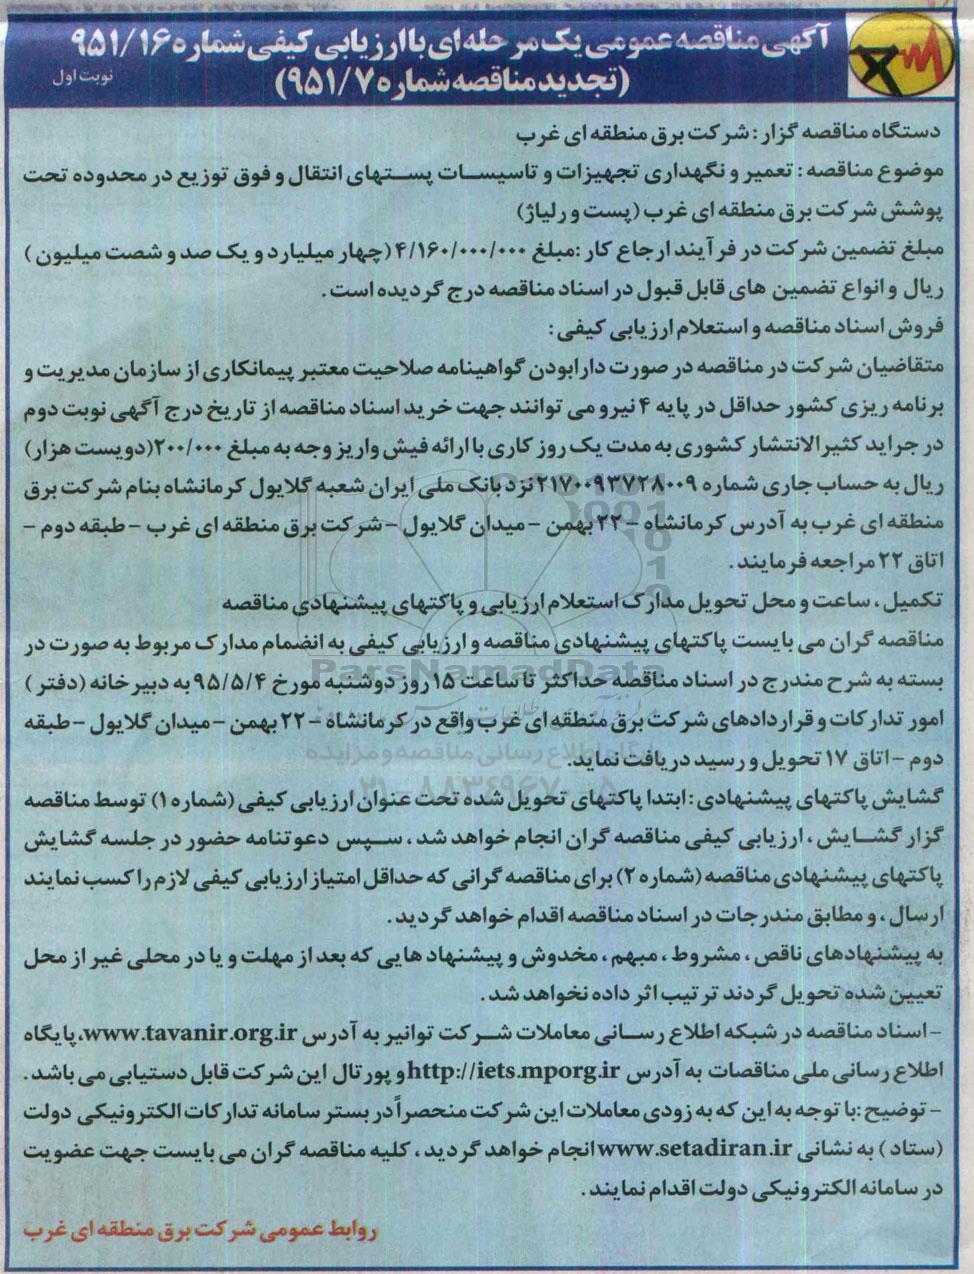 آگهی مناقصه عمومی یک مرحله ای با ارزیابی کیفی شماره ۹۵۱/۱۶
(تجدید مناقصه شماره ۹۵۱/۷)
نوبت اول
دستگاه مناقصه گزار : شرکت برق منطقه ای غرب
موضوع مناقصه : تعمیر و نگهداری تجهیزات و تاسیسات پستهای انتقال و فوق توزیع در محدوده تحت
پوشش شرکت برق منطقه ای غرب (پست و رلیاژ)
مبلغ تضمین شرکت در فرآیند ارجاع کار :مبلغ ۴/۱۶۰/۰۰۰/۰۰۰ (چهار میلیارد و یک صد و شصت میلیون )
ریال و انواع تضمین های قابل قبول در اسناد مناقصه درج گردیده است .
فروش اسناد مناقصه و استعلام ارزیابی کیفی :
متقاضیان شرکت در مناقصه در صورت دارابودن گواهینامه صلاحیت معتبر پیمانکاری از سازمان مدیریت و
برنامه ریزی کشور حداقل در پایه ۴ نیرو می توانند جهت خرید اسناد مناقصه از تاریخ درج آگهی نوبت دوم
در جراید کثیرالانتشار کشوری به مدت یک روز کاری با ارائه فیش واریز وجه به مبلغ ۲۰۰/۰۰۰(دویست هزار)
ریال به حساب جاری شماره ۲۱۷۰۰۹۳۷۲۸۰۰۹ نزد بانک ملی ایران شعبه گلایول کرمانشاه بنام شرکت برق
منطقه ای غرب به آدرس کرمانشاه – ۲۲ بهمن – میدان گلایول – شرکت برق منطقه ای غرب – طبقه دوم –
اتاق ۲۲ مراجعه فرمایند .
تکمیل ، ساعت و محل تحویل مدارک استعلام ارزیابی و پاکتهای پیشنهادی مناقصه
مناقصه گران می بایست پاکتهای پیشنهادی مناقصه و ارزیابی کیفی به انضمام مدارک مربوط به صورت در
بسته به شرح مندرج در اسناد مناقصه حداکثر تا ساعت ۱۵ روز دوشنبه مورخ ۹۵/۵/۴ به دبیرخانه (دفتر )
امور تدارکات و قراردادهای شرکت برق منطقه ای غرب واقع در کرمانشاه – ۲۲ بهمن – میدان گلایول – طبقه
دوم – اتاق ۱۷ تحویل و رسید دریافت نماید.
گشایش پاکتهای پیشنهادی : ابتدا پاکتهای تحویل شده تحت عنوان ارزیابی کیفی (شماره ۱) توسط مناقصه
گزار گشایش ، ارزیابی کیفی مناقصه گران انجام خواهد شد ، سپس دعوتنامه حضور در جلسه گشایش
پاکتهای پیشنهادی مناقصه (شماره ۲) برای مناقصه گرانی که حداقل امتیاز ارزیابی کیفی لازم را کسب نمایند
ارسال ، و مطابق مندرجات در اسناد مناقصه اقدام خواهد گردید .
به پیشنهادهای ناقص ، مشروط ، مبهم ، مخدوش و پیشنهاد هایی که بعد از مهلت و یا در محلی غیر از محل
تعیین شده تحویل گردند ترتیب اثر داده نخواهد شد .
- اسناد مناقصه در شبکه اطلاع رسانی معاملات شرکت توانیر به آدرس www.tavanir.org.ir، پایگاه
اطلاع رسانی ملی مناقصات به آدرس http://iets.mporg.ir و پورتال این شرکت قابل دستیابی می باشد .
- توضیح :با توجه به این که به زودی معاملات این شرکت منحصراً در بستر سامانه تدارکات الکترونیکی دولت
(ستاد ) به نشانی www.setadiran.ir انجام خواهد گردید ، کلیه مناقصه گران می بایست جهت عضویت
در سامانه الکترونیکی دولت اقدام نمایند .
روابط عمومی شرکت برق منطقه ای غرب
ParsNamadData
پایگاه اطلاع رسانی مناقصه و مزایده
۰۲۱-۸۸۳۴۹۶۷۰-۵